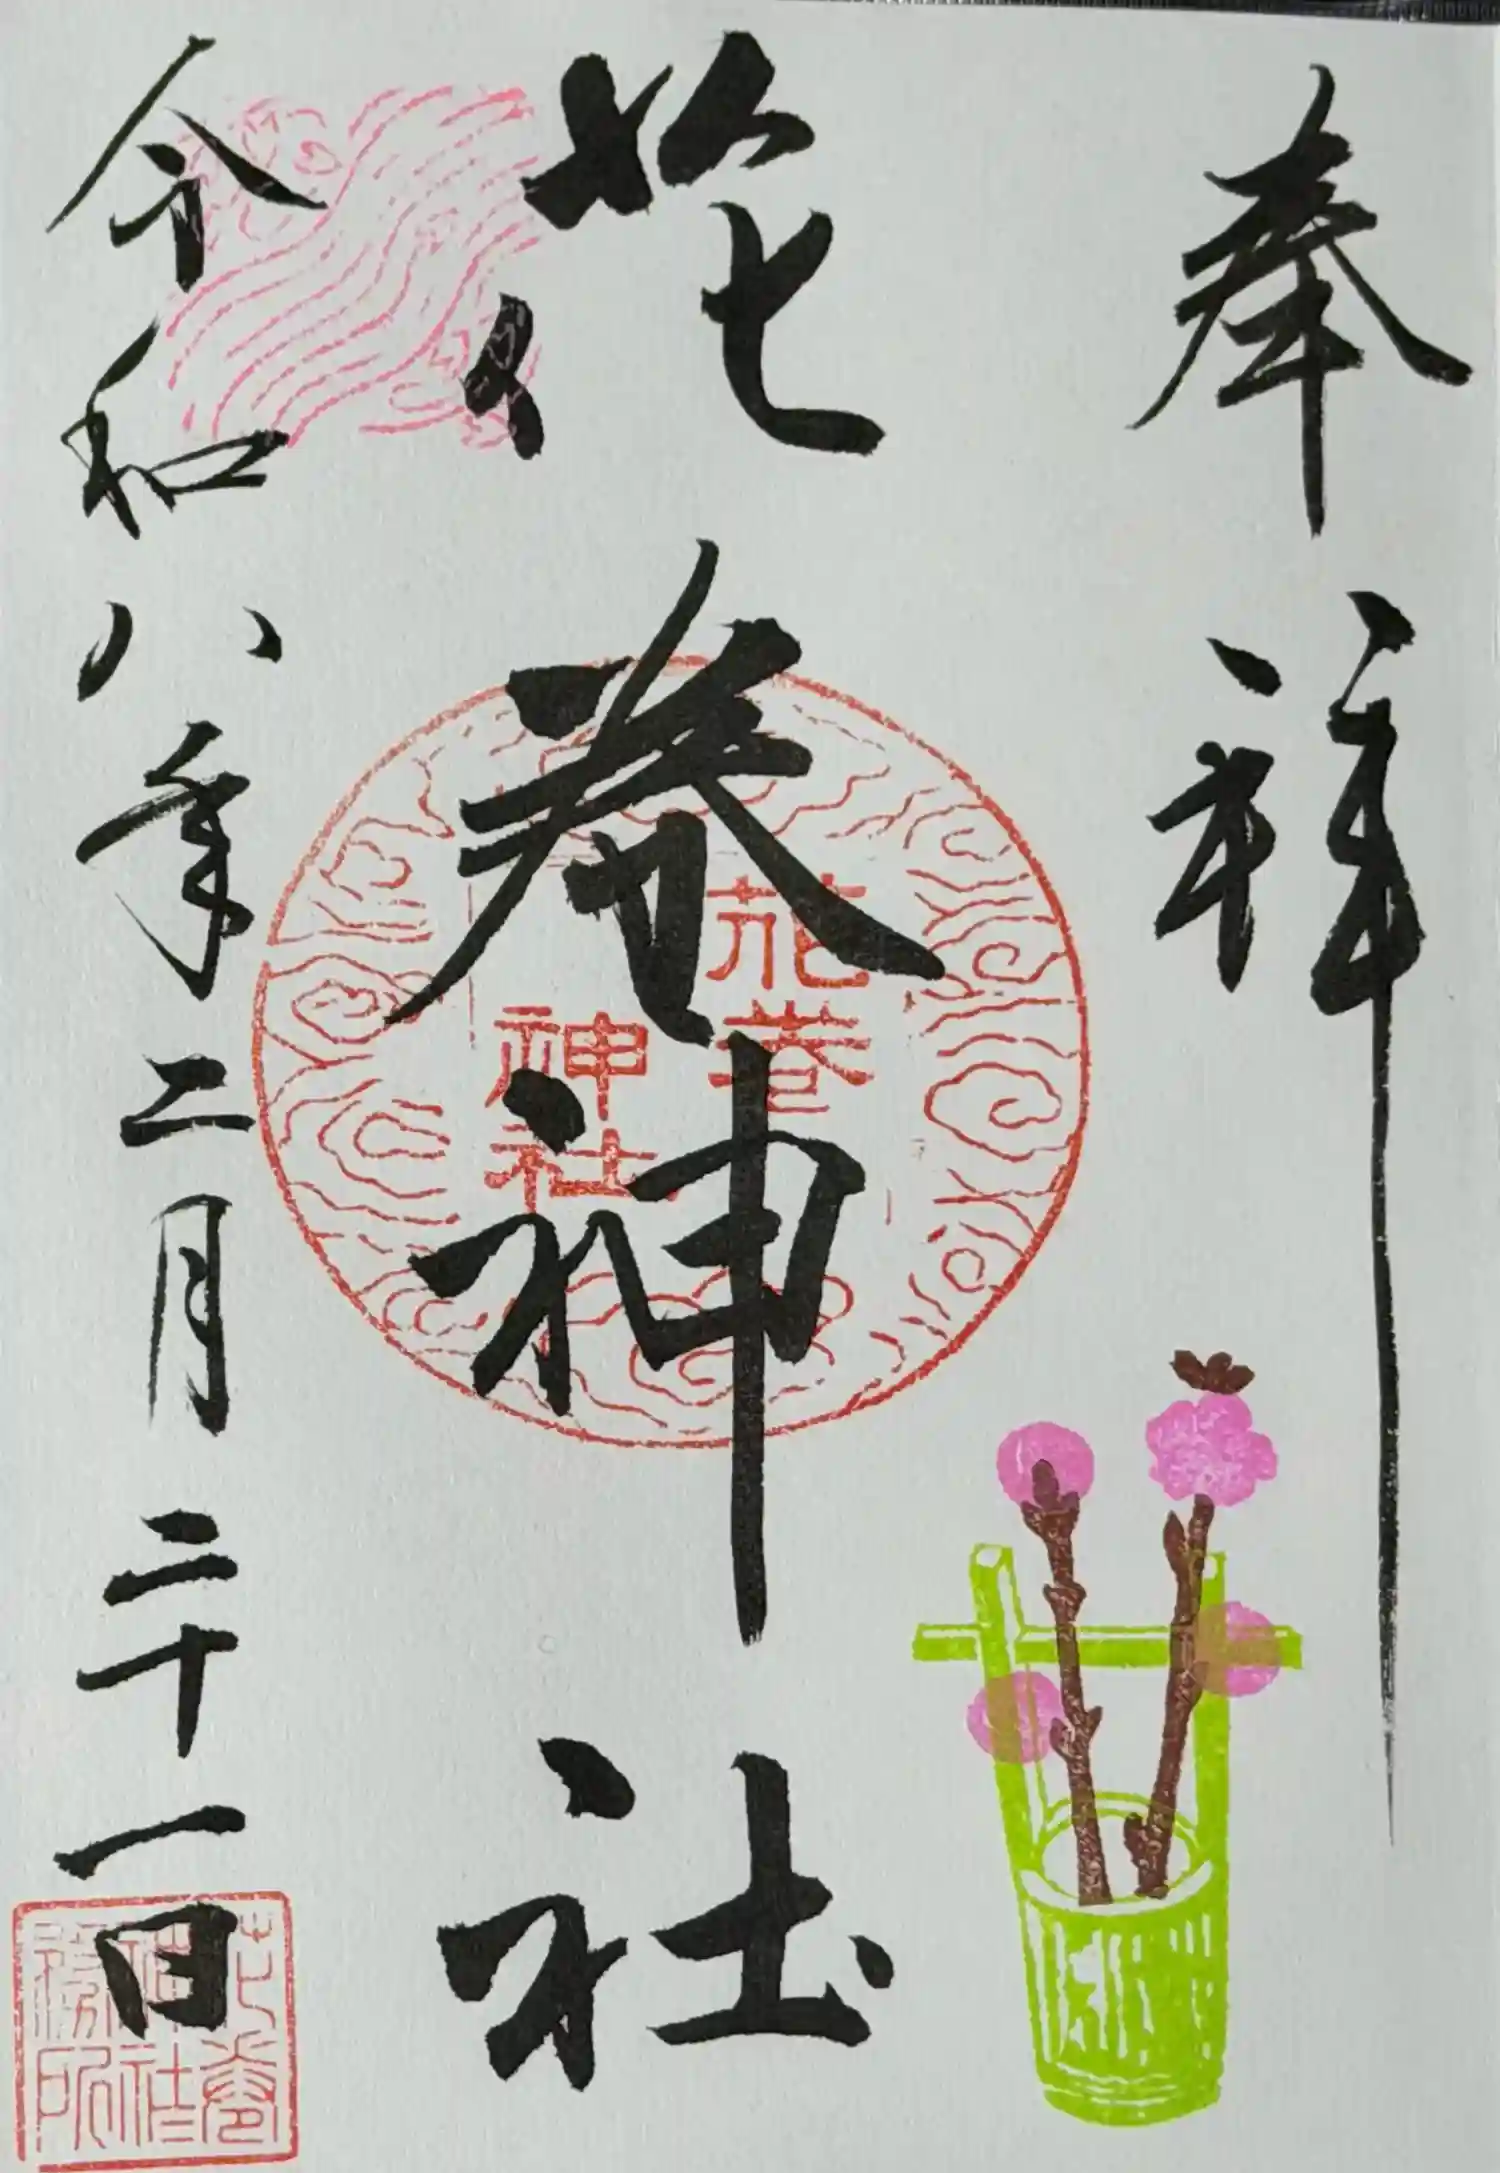 奉拝
花巻神社
令和八年二月二十一日
花巻
神社
花巻
神社
務所